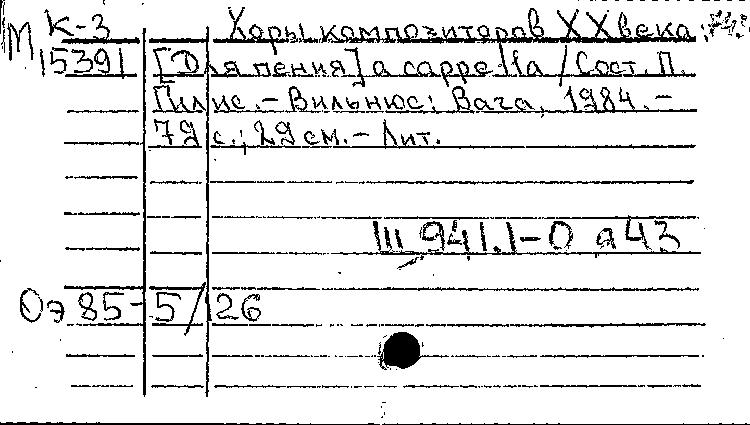 М К-3 Хоры композиторов XX века
15391 [Для пения] a cappella / Сост. П.
Пилис. – Вильнюс: Вага, 1984. –
79 с.; 29 см. – Лит.
Ш 941.1-0 я 43
Оэ 85-5/126